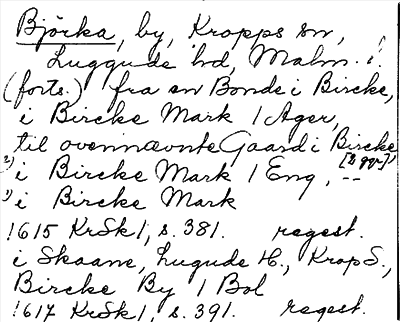 Björka, by, Kropps sn,
Luggude hd, Malm. l.
(forts.) fra en Bonde i Bircke,
i Bircke Mark 1 Ager,
til ovennævnte Gaard i Bircke
2) i Bircke Mark 1 Eng, -- [2 ggr]1)
1) i Bircke Mark
1615 KrSk1, s. 381. regest.
i Skaane, Lugude H., Krop S.,
Bircke By 1 Bol
1617 KrSk1, s. 391. regest.